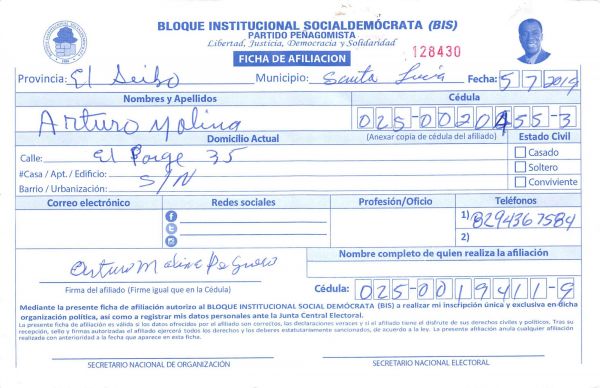 BLOQUE INSTITUCIONAL SOCIALDEMÓCRATA (BIS)
PARTIDO PEÑAGOMISTA
Libertad, Justicia, Democracia y Solidaridad
128430
FICHA DE AFILIACION
Provincia: El Seibo Municipio: Santa Lucía Fecha: 5/7/2019
Nombres y Apellidos Cédula
Arturo Molina 025-0020455-3
Domicilio Actual (Anexar copia de cédula del afiliado) Estado Civil
Calle: El 35 Casado
#Casa / Apt. / Edificio: S/N Soltero
Barrio / Urbanización: Conviviente
Correo electrónico Redes sociales Profesión/Oficio Teléfonos
1) 8294367584
2)
Nombre completo de quien realiza la afiliación
Arturo Molina
Firma del afiliado (Firme igual que en la Cédula) Cédula: 025-0019411-9
Mediante la presente ficha de afiliación autorizo al BLOQUE INSTITUCIONAL SOCIAL DEMÓCRATA (BIS) a realizar mi inscripción única y exclusiva en dicha
organización política, así como a registrar mis datos personales ante la Junta Central Electoral.
La presente ficha de afiliación es válida si los datos ofrecidos por el afiliado son correctos, las declaraciones veraces y si el afiliado tiene el disfrute de sus derechos civiles y políticos. Tras su
recepción, sello y firmas autorizadas el afiliado ejercerá todos los derechos y los deberes estatutariamente sancionados, de acuerdo a la ley. La presente afiliación anula cualquier afiliación
realizada con anterioridad a la fecha que aparece en esta ficha.
SECRETARIO NACIONAL DE ORGANIZACIÓN SECRETARIO NACIONAL ELECTORAL